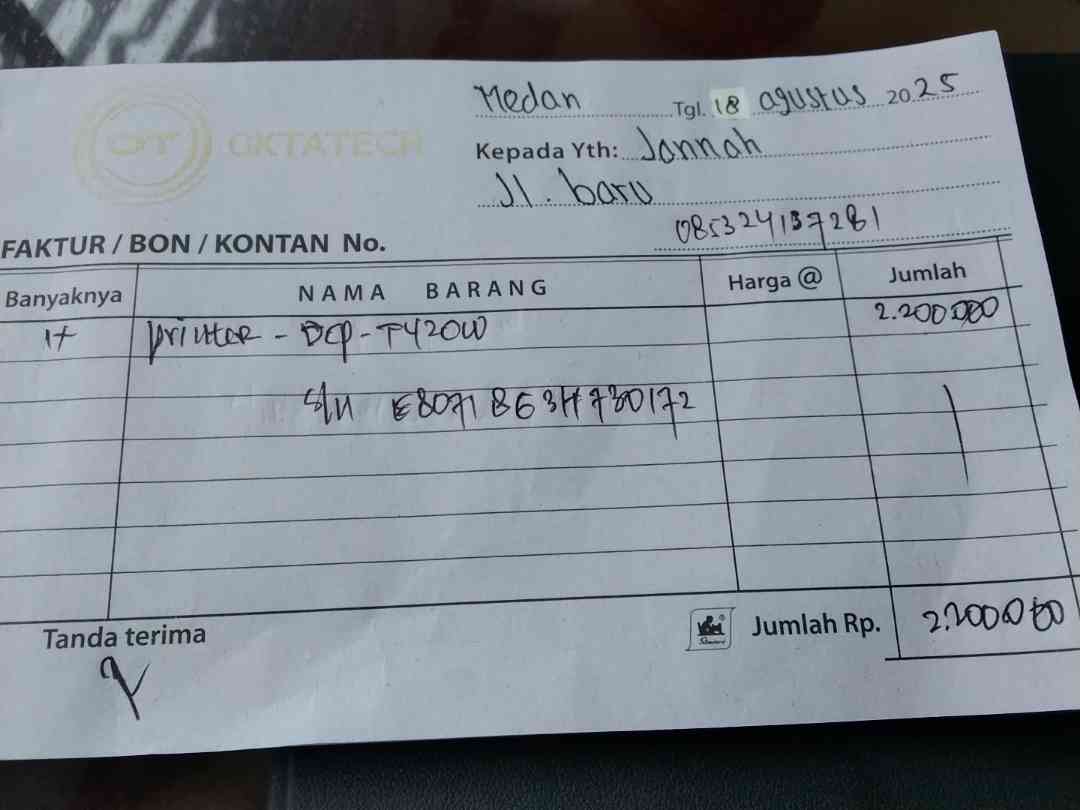 OT OKTATECH
Medan Tgl. 18 agustus 2025
Kepada Yth: Jannah
Jl. baru
085324137281
FAKTUR / BON / KONTAN No.
Banyaknya NAMA BARANG Harga @ Jumlah
1+ printer - DCP-T420W 2.200.000
S/N E8071B63H730172
Tanda terima
Jumlah Rp. 2.200.000